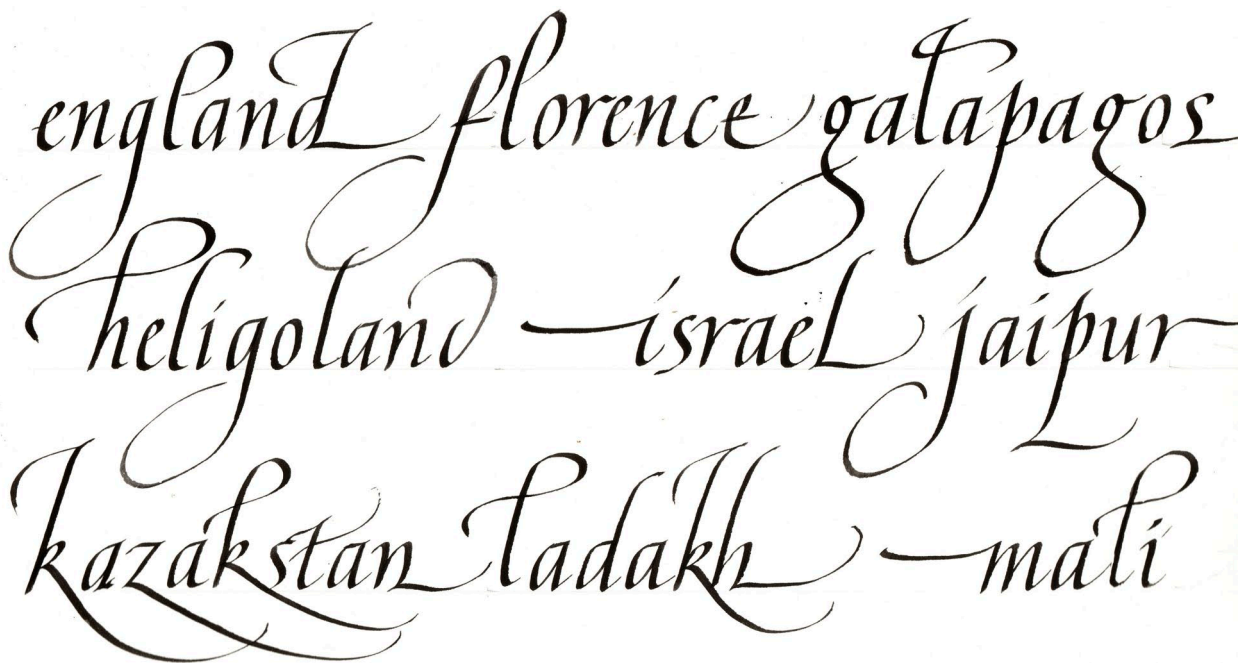 england florence galapagos
heligoland israel jaipur
kazakstan ladakh mali